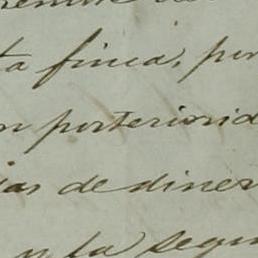 ta finca, por
n posteriorid
ias de diner
y la segu